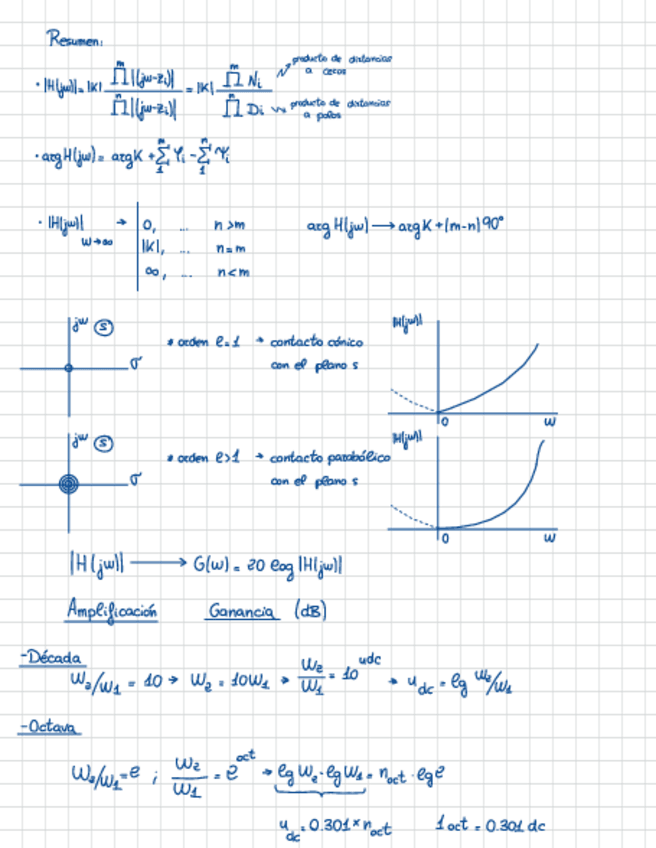 Resumen:
· |H(jω)| = |K| ∏₁ᵐ |(jω-zᵢ)| / ∏₁ⁿ |(jω-zᵢ)| = |K| ∏₁ᵐ Nᵢ / ∏₁ⁿ Dᵢ
producto de distancias
a ceros
producto de distancias
a polos
· arg H(jω) = arg K + ∑₁ᵐ φᵢ - ∑₁ⁿ Ψᵢ
· |H(jω)| → 0, ... n>m
ω→∞ |K|, ... n=m
∞, ... n<m
arg H(jω) → arg K + (m-n) 90°
jω Ⓢ
σ
* orden l=1 → contacto cónico
con el plano s
|H(jω)|
0 ω
jω Ⓢ
σ
* orden l>1 → contacto parabólico
con el plano s
|H(jω)|
0 ω
|H(jω)| → G(ω) = 20 log |H(jω)|
Amplificación Ganancia (dB)
-Década
ω₂/ω₁ = 10 → ω₂ = 10ω₁ → ω₂/ω₁ = 10^udc → u dc = lg ω₂/ω₁
-Octava
ω₂/ω₁ = 2 ; ω₂/ω₁ = 2^oct → lg ω₂ - lg ω₁ = n oct · lg 2
u dc = 0.301 × n oct 1 oct = 0.301 dc